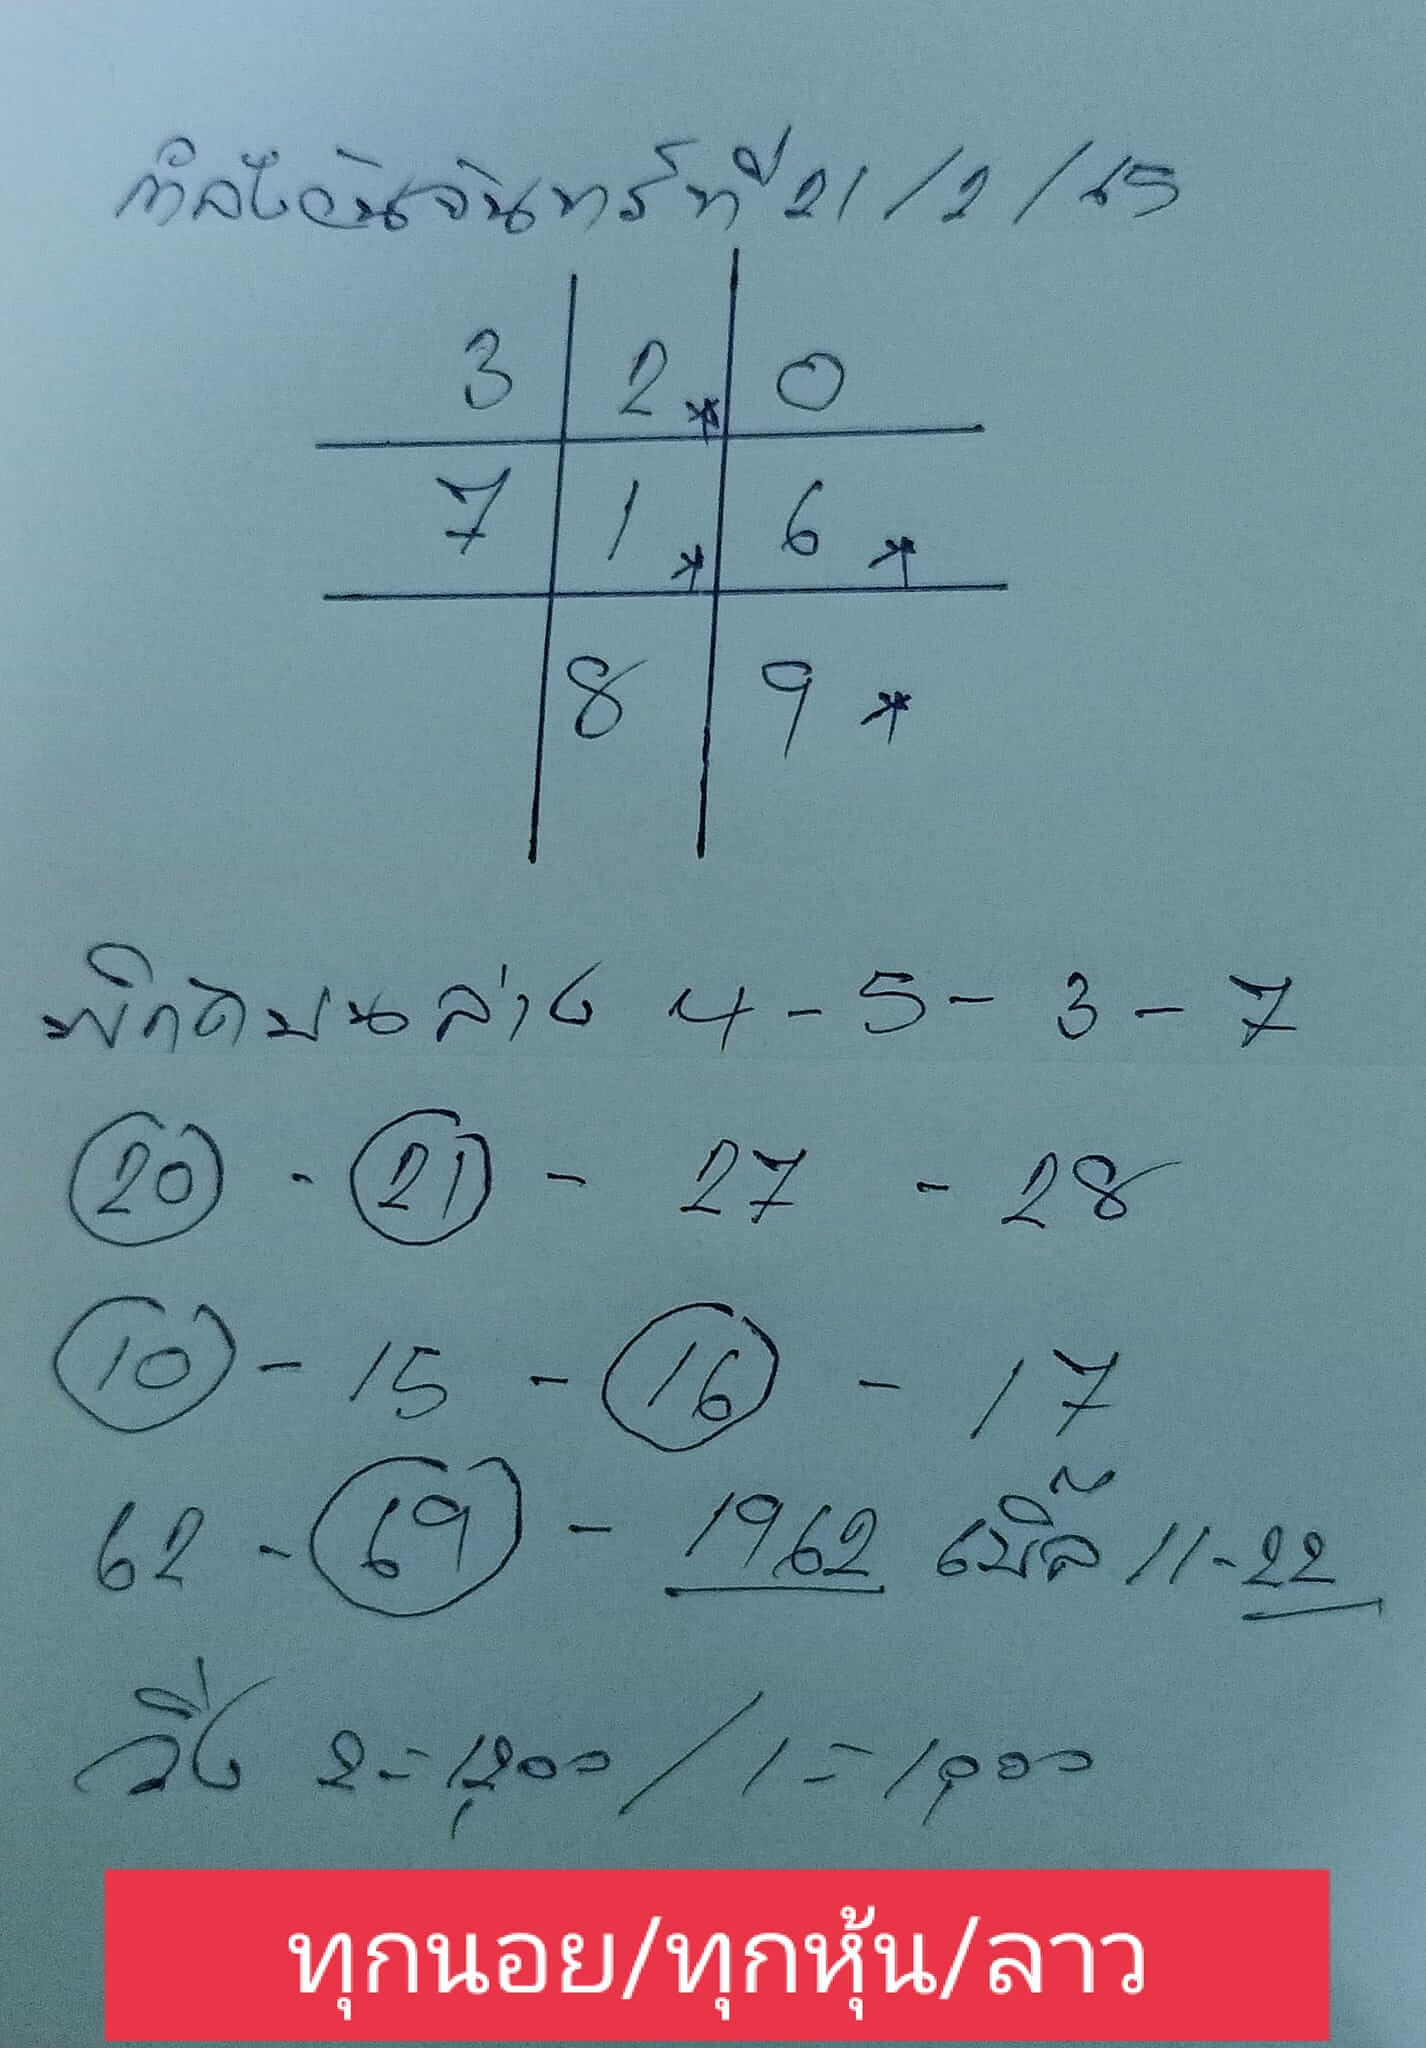 กำลังวันจันทร์ที่ 21/2/65
3 2* 0
7 1* 6*
8 9*
พิกัดบนล่าง 4-5-3-7
20-21-27-28
10-15-16-17
62-69-1962 เบิ้ล 11-22
วิ่ง 2=1,200/1=1,000
ทุกนอย/ทุกหุ้น/ลาว